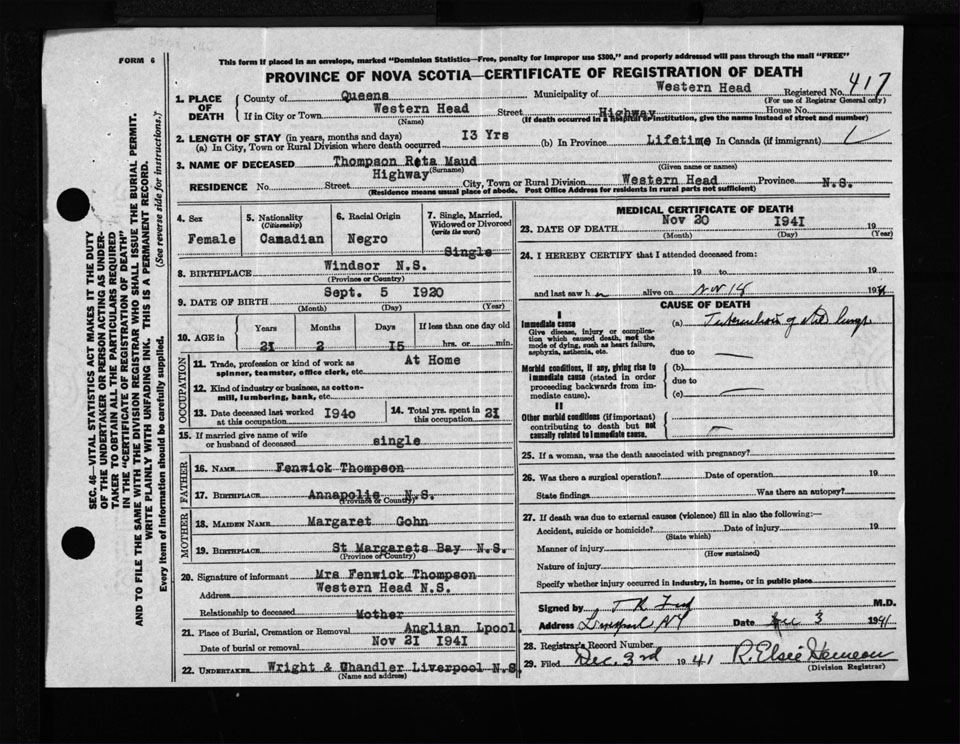 FORM 6
This form if placed in an envelope, marked "Dominion Statistics—Free, penalty for improper use $300," and properly addressed will pass through the mail "FREE"
PROVINCE OF NOVA SCOTIA—CERTIFICATE OF REGISTRATION OF DEATH
417
1. PLACE OF DEATH
County of Queens Municipality of Western Head Registered No.
(For use of Registrar General only)
If in City or Town Western Head Street Highway House No.
(Name) (If death occurred in a hospital or institution, give the name instead of street and number)
2. LENGTH OF STAY (in years, months and days)
(a) In City, Town or Rural Division where death occurred I3 Yrs (b) In Province Lifetime In Canada (if immigrant)
3. NAME OF DECEASED Thompson Rita Maud
(Surname) (Given name or names)
RESIDENCE No. Highway Street City, Town or Rural Division Western Head Province N.S.
(Residence means usual place of abode. Post Office Address for residents in rural parts not sufficient)
4. Sex Female
5. Nationality (Citizenship) Camadian
6. Racial Origin Negro
7. Single, Married, Widowed or Divorced (write the word) Single
8. BIRTHPLACE Windsor N.S.
(Province or Country)
9. DATE OF BIRTH Sept. 5 I920
(Month) (Day) (Year)
10. AGE in Years Months Days If less than one day old
2I 2 I5 hrs. or min.
OCCUPATION
11. Trade, profession or kind of work as spinner, teamster, office clerk, etc. At Home
12. Kind of industry or business, as cotton-mill, lumbering, bank, etc.
13. Date deceased last worked at this occupation I940
14. Total yrs. spent in this occupation 2I
15. If married give name of wife or husband of deceased single
FATHER
16. NAME Fenwick Thompson
17. BIRTHPLACE Annapolis N.S.
(Province or Country)
MOTHER
18. MAIDEN NAME Margaret Gohn
19. BIRTHPLACE St Margarets Bay N.S.
(Province or Country)
20. Signature of informant Mrs Fenwick Thompson
Address Western Head N.S.
Relationship to deceased Mother
21. Place of Burial, Cremation or Removal Anglian Lpool.
Date of burial or removal Nov 2I I94I
22. UNDERTAKER Wright & Chandler Liverpool N.S.
(Name and address)
MEDICAL CERTIFICATE OF DEATH
23. DATE OF DEATH Nov 20 I94I 19
(Month) (Day) (Year)
24. I HEREBY CERTIFY that I attended deceased from:
19 to 19
and last saw h er alive on Nov 18 1941
CAUSE OF DEATH
I
Immediate cause
Give disease, injury or complication which caused death, not the mode of dying, such as heart failure, asphyxia, asthenia, etc.
(a) Tuberculosis of lungs
due to
Morbid conditions, if any, giving rise to immediate cause (stated in order proceeding backwards from immediate cause).
(b)
due to
(c)
II
Other morbid conditions (if important) contributing to death but not causally related to immediate cause.
25. If a woman, was the death associated with pregnancy?
26. Was there a surgical operation? Date of operation 19
State findings Was there an autopsy?
27. If death was due to external causes (violence) fill in also the following:—
Accident, suicide or homicide? Date of injury 19
(State which)
Manner of injury
(How sustained)
Nature of injury
Specify whether injury occurred in industry, in home, or in public place
Signed by M.D.
Address Liverpool NS Date 3 1941
28. Registrar's Record Number
29. Filed Dec. 3rd 1941 R. Elsie
(Division Registrar)
SEC. 46—VITAL STATISTICS ACT MAKES IT THE DUTY
OF THE UNDERTAKER OR PERSON ACTING AS UNDER-
TAKER TO OBTAIN ALL THE PARTICULARS REQUIRED
IN THE "CERTIFICATE OF REGISTRATION OF DEATH"
AND TO FILE THE SAME WITH THE DIVISION REGISTRAR WHO SHALL ISSUE THE BURIAL PERMIT.
WRITE PLAINLY WITH UNFADING INK. THIS IS A PERMANENT RECORD.
Every item of Information should be carefully supplied. (See reverse side for instructions.)